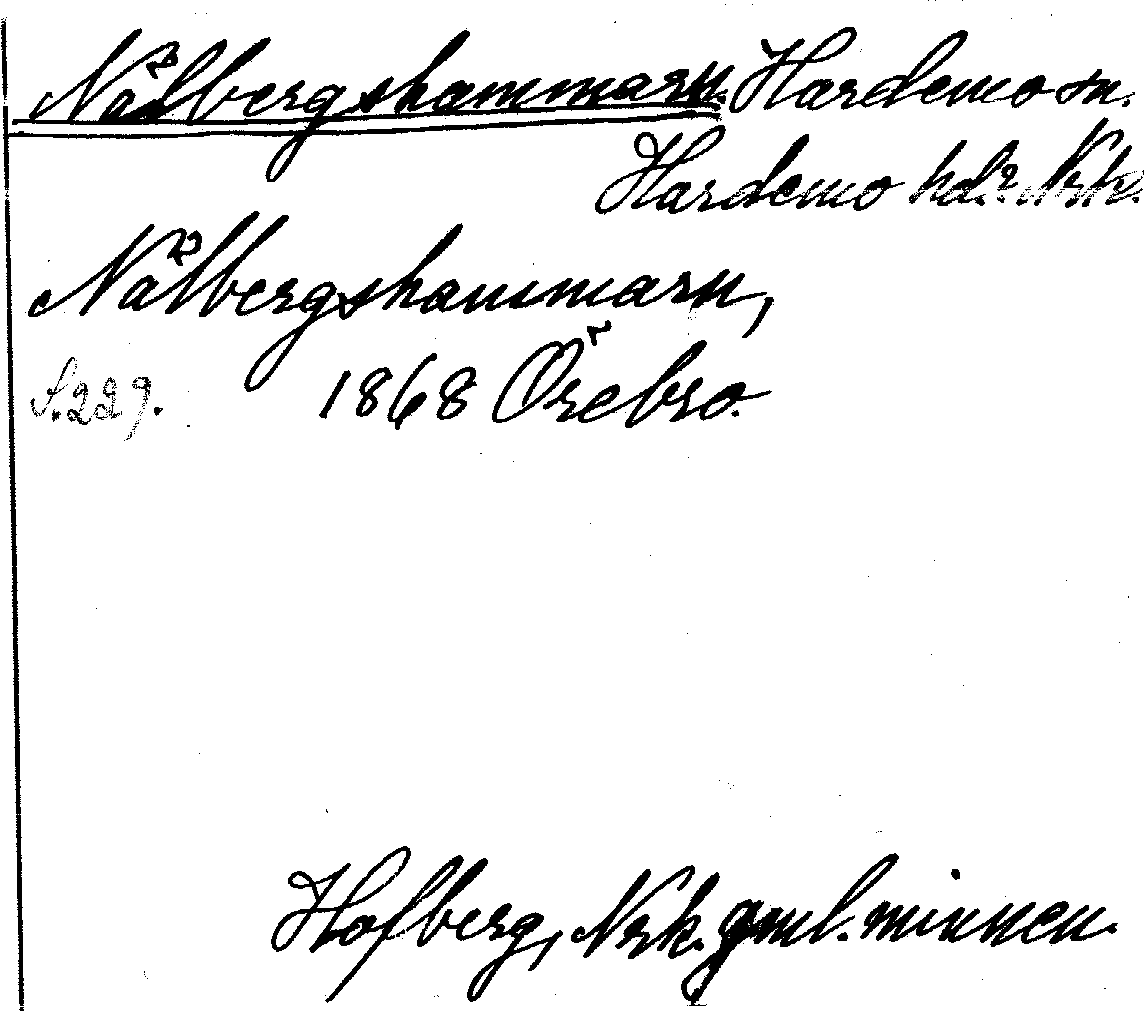 Nålbergshammarn. Hardemo sn.
Hardemo hd. Nrk.
Nålbergshammarn,
S. 229. 1868 Örebro.
Hofberg, Nrk. gml. minnen.